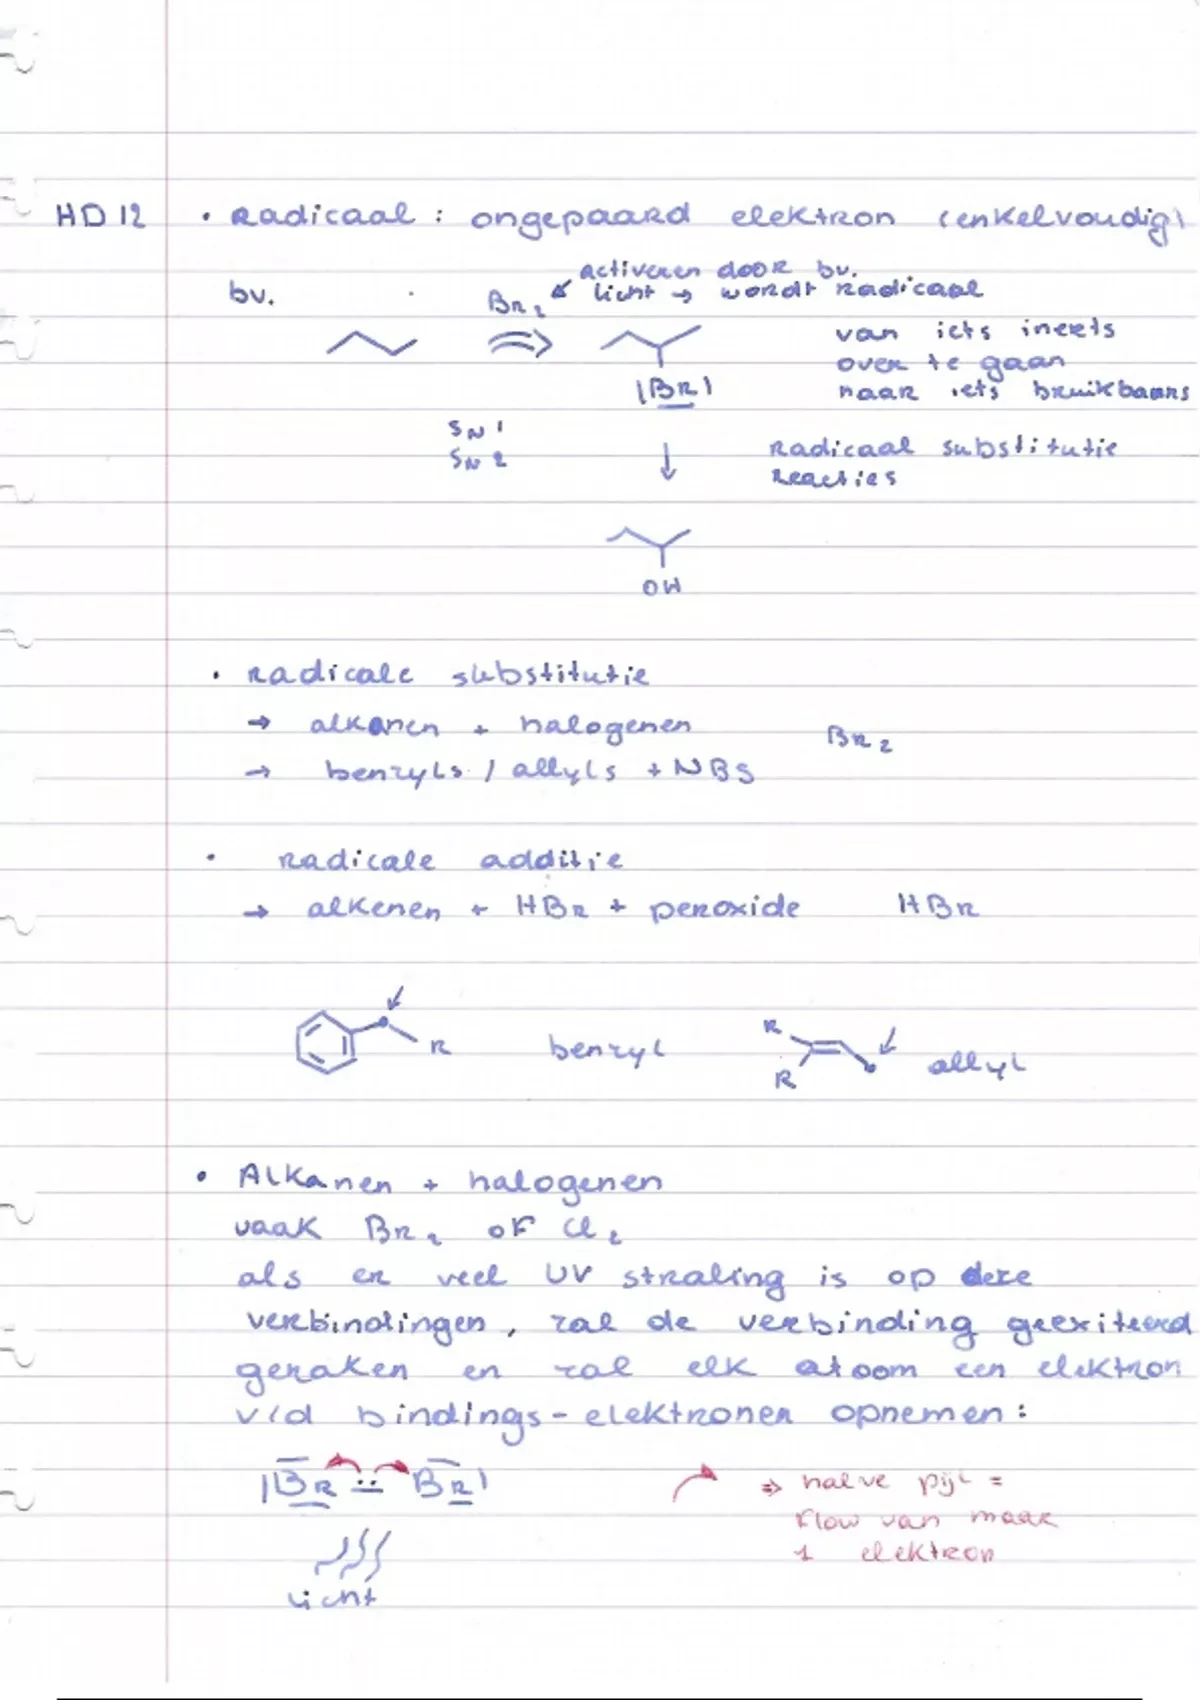 HD 12 • Radicaal : ongepaard elektron (enkelvoudig)
activeren door bv.
bv. Br2 licht → wordt radicaal
van iets inerts
over te gaan
|Br| naar iets bruikbaars
SN1
SN2
↓ Radicaal substitutie
reacties
OH
• radicale substitutie
→ alkanen + halogenen Br2
→ benzyls / allyls + NBS
• radicale additie
→ alkenen + HBr + peroxide HBr
R benzyl R R allyl
• Alkanen + halogenen
vaak Br2 of Cl2
als er veel UV straling is op deze
verbindingen, zal de verbinding geëxiteerd
geraken en zal elk atoom een elektron
v/d bindings-elektronen opnemen :
|Br : Br| ⇒ halve pijl =
flow van maar
1 elektron
licht